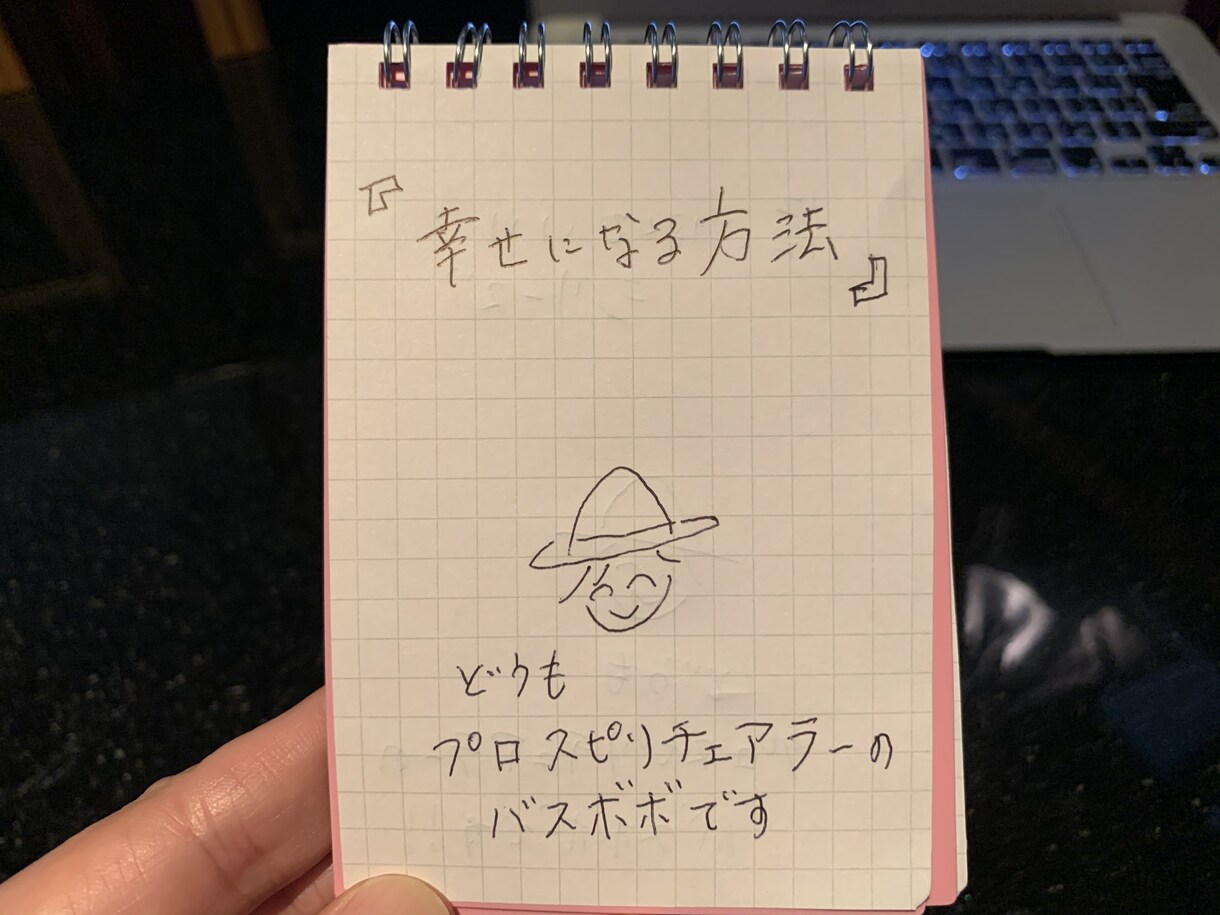 『幸せになる方法』
どうも
プロスピリチェアラーの
バスボボです